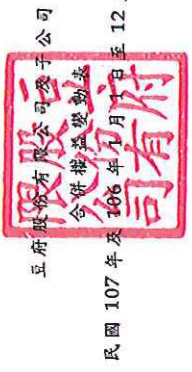 豆府股份有限公司及子公司
合併權益變動表
民國 107 年及 106 年 1 月 1 日至 12